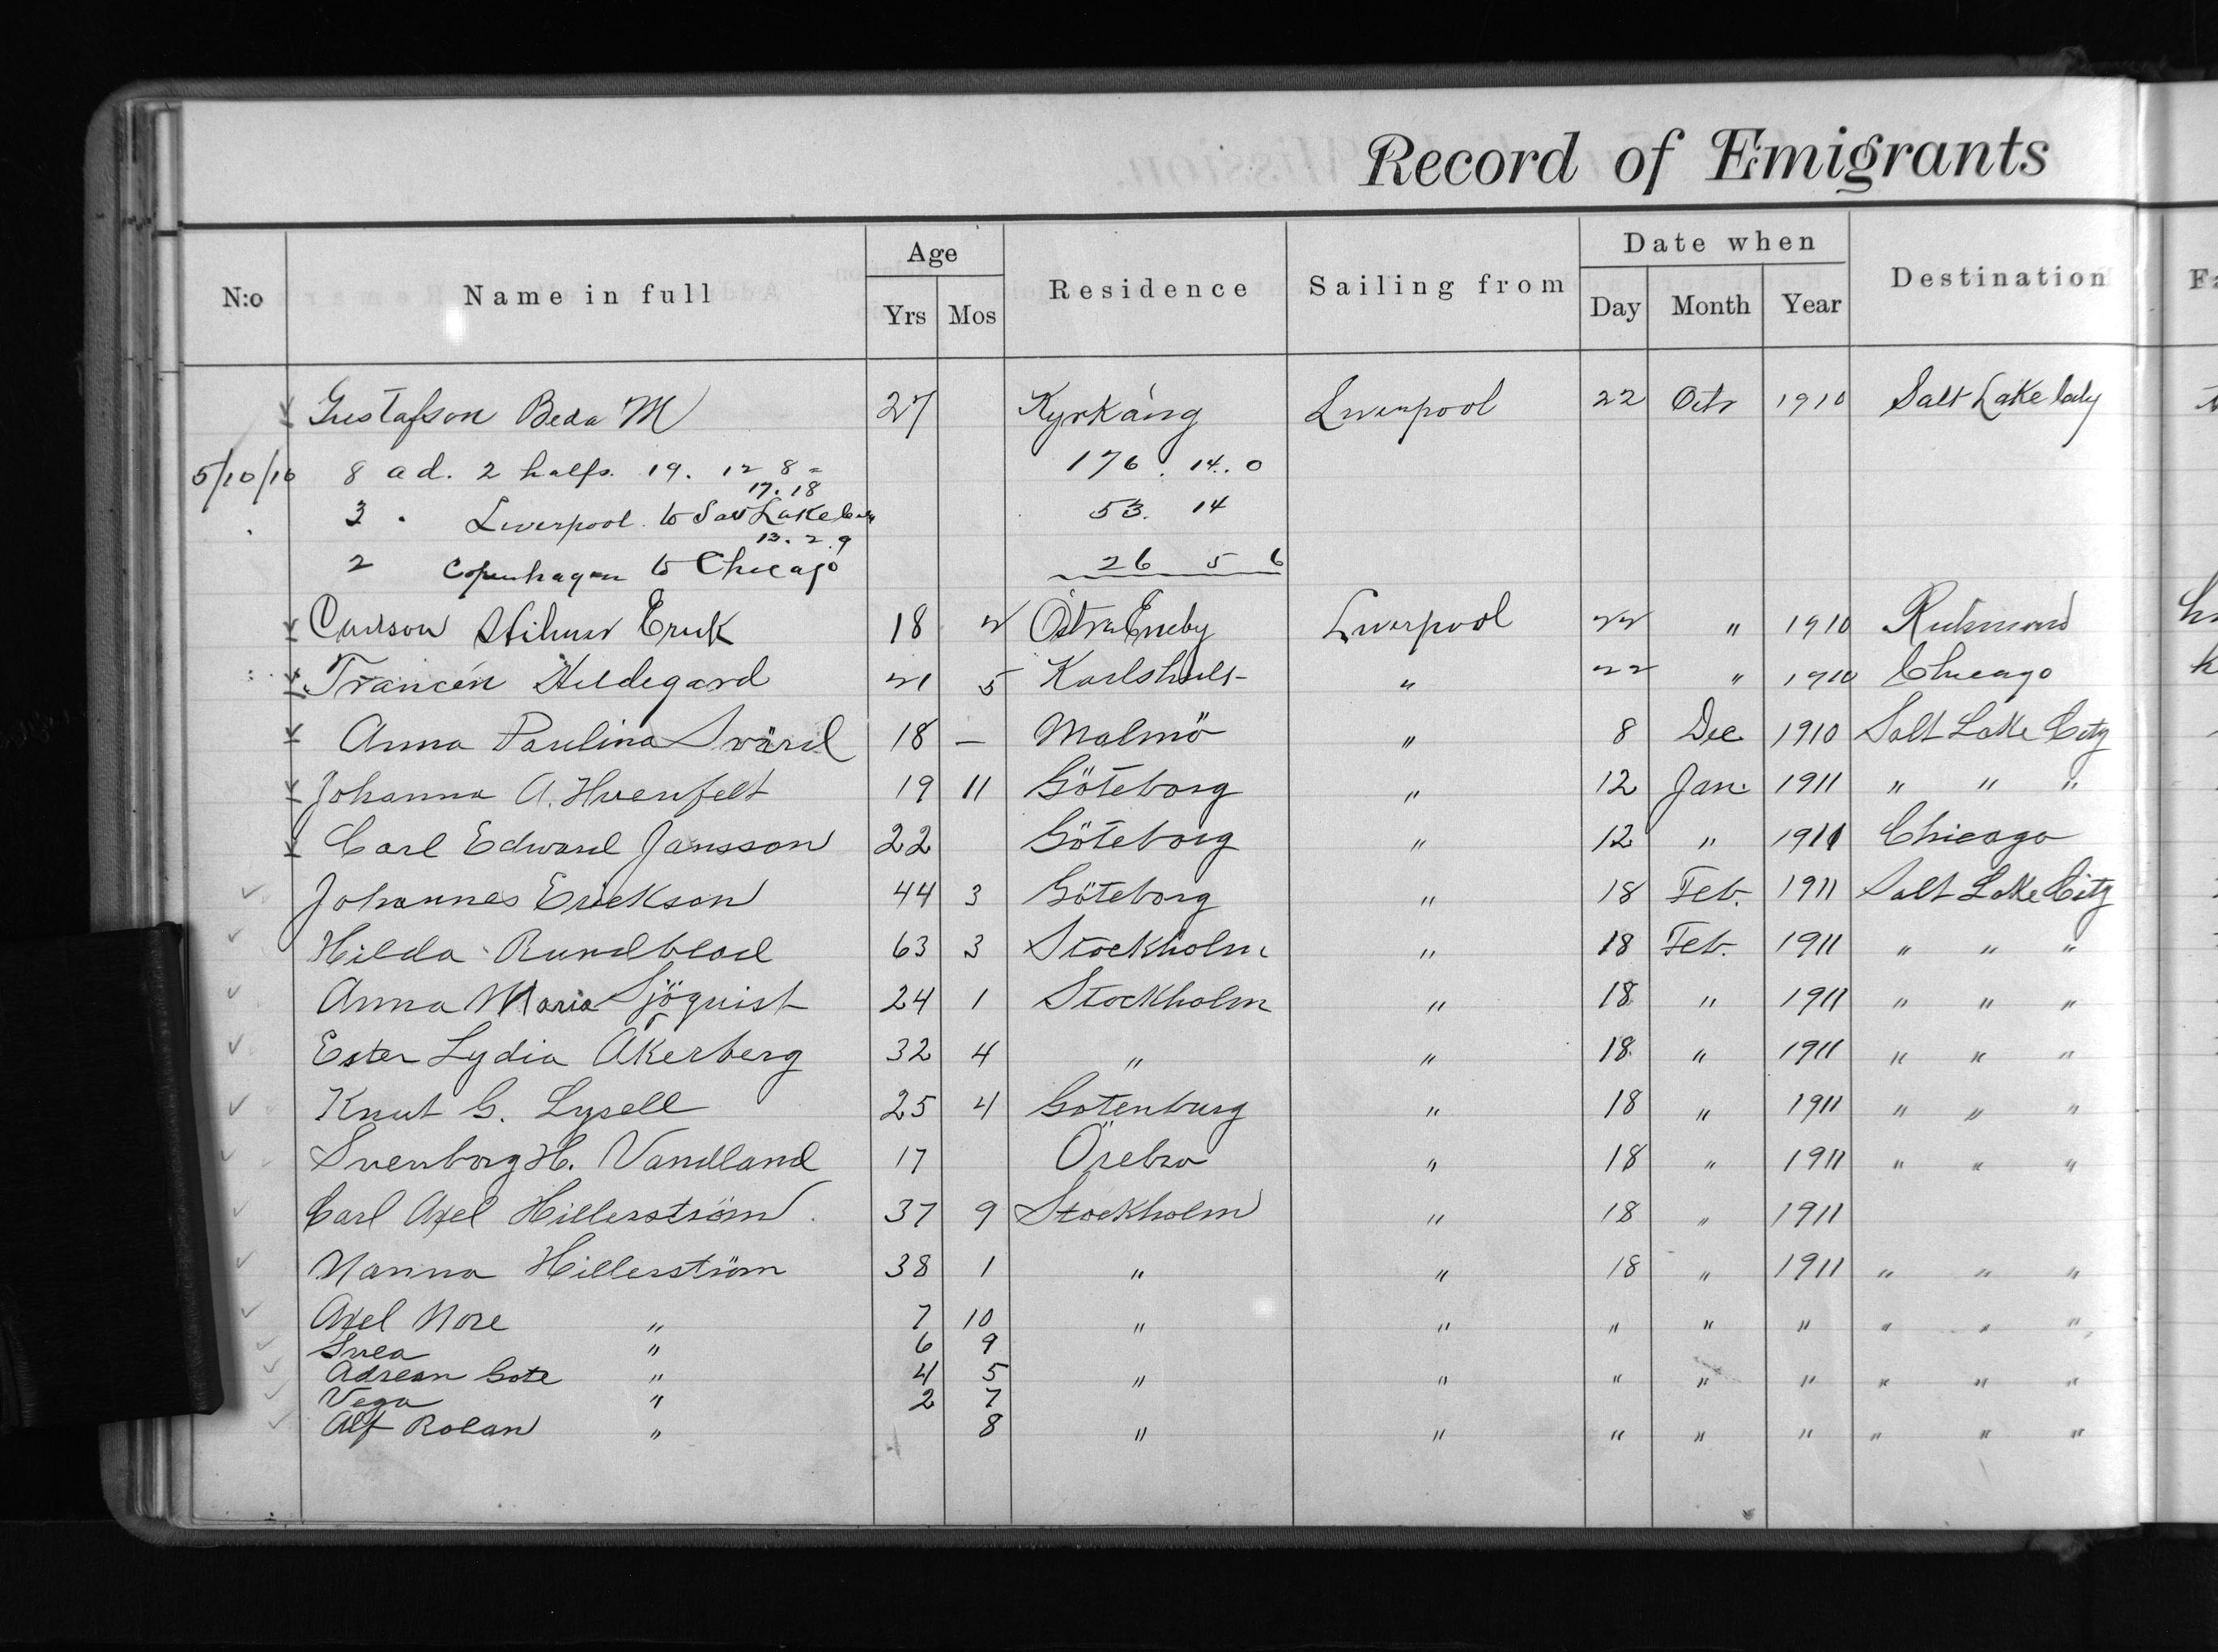 Record of Emigrants
N:o Name in full Age Yrs Mos Residence Sailing from Date when Day Month Year Destination
Gustafson Beda M 27 Kyrkäng Liverpool 22 Octr 1910 Salt Lake City
5/10/10 8 ad. 2 halfs. 19. 12 8 = 176. 14. 0
17. 18
3 " Liverpool to Salt Lake City 53. 14
13. 2. 9
2 Copenhagen to Chicago 26 5 6
Carlson Hilmer Erik 18 2 Östra Eneby Liverpool 22 " 1910 Richmond
Francén Hildegard 21 5 Karlshult " 22 " 1910 Chicago
Anna Paulina Svärd 18 — Malmö " 8 Dec 1910 Salt Lake City
Johanna A. Huenfelt 19 11 Göteborg " 12 Jan. 1911 " " "
Carl Edward Jansson 22 Göteborg " 12 " 1911 Chicago
Johannes Erickson 44 3 Göteborg " 18 Feb. 1911 Salt Lake City
Hilda Rundblad 63 3 Stockholm " 18 Feb. 1911 " " "
Anna Maria Sjöquist 24 1 Stockholm " 18 " 1911 " " "
Ester Lydia Åkerberg 32 4 " " 18 " 1911 " " "
Knut G. Lysell 25 4 Gotenburg " 18 " 1911 " " "
Svenborg H. Vandland 17 Örebro " 18 " 1911 " " "
Carl Axel Hillerström 37 9 Stockholm " 18 " 1911
Nanna Hillerström 38 1 " " 18 " 1911 " " "
Axel Nore " 7 10 " " " " " " " "
Svea " 6 9
Adrean Gote " 4 5 " " " " " " " "
Vega " 2 7
Alf Rolan " 8 " " " " " " " "